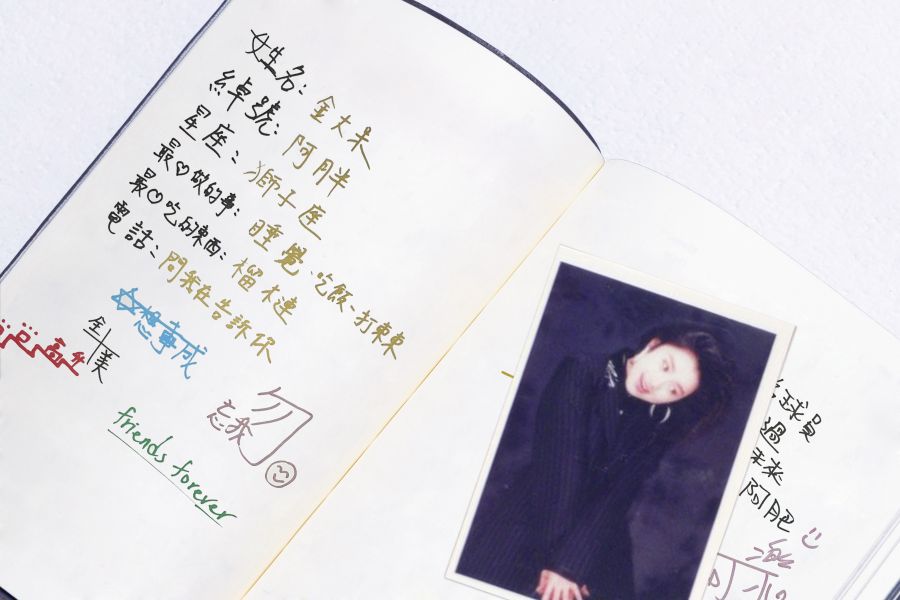 姓名：金大呆
綽號：阿胖
星座：獅子座
最♡做的事：睡覺、吃飯、打東東
最♡吃的東西：榴槤
電話：問我在告訴你
想事成
高升
金美
勿
忘我
friends forever
球員
過
未來
阿肥